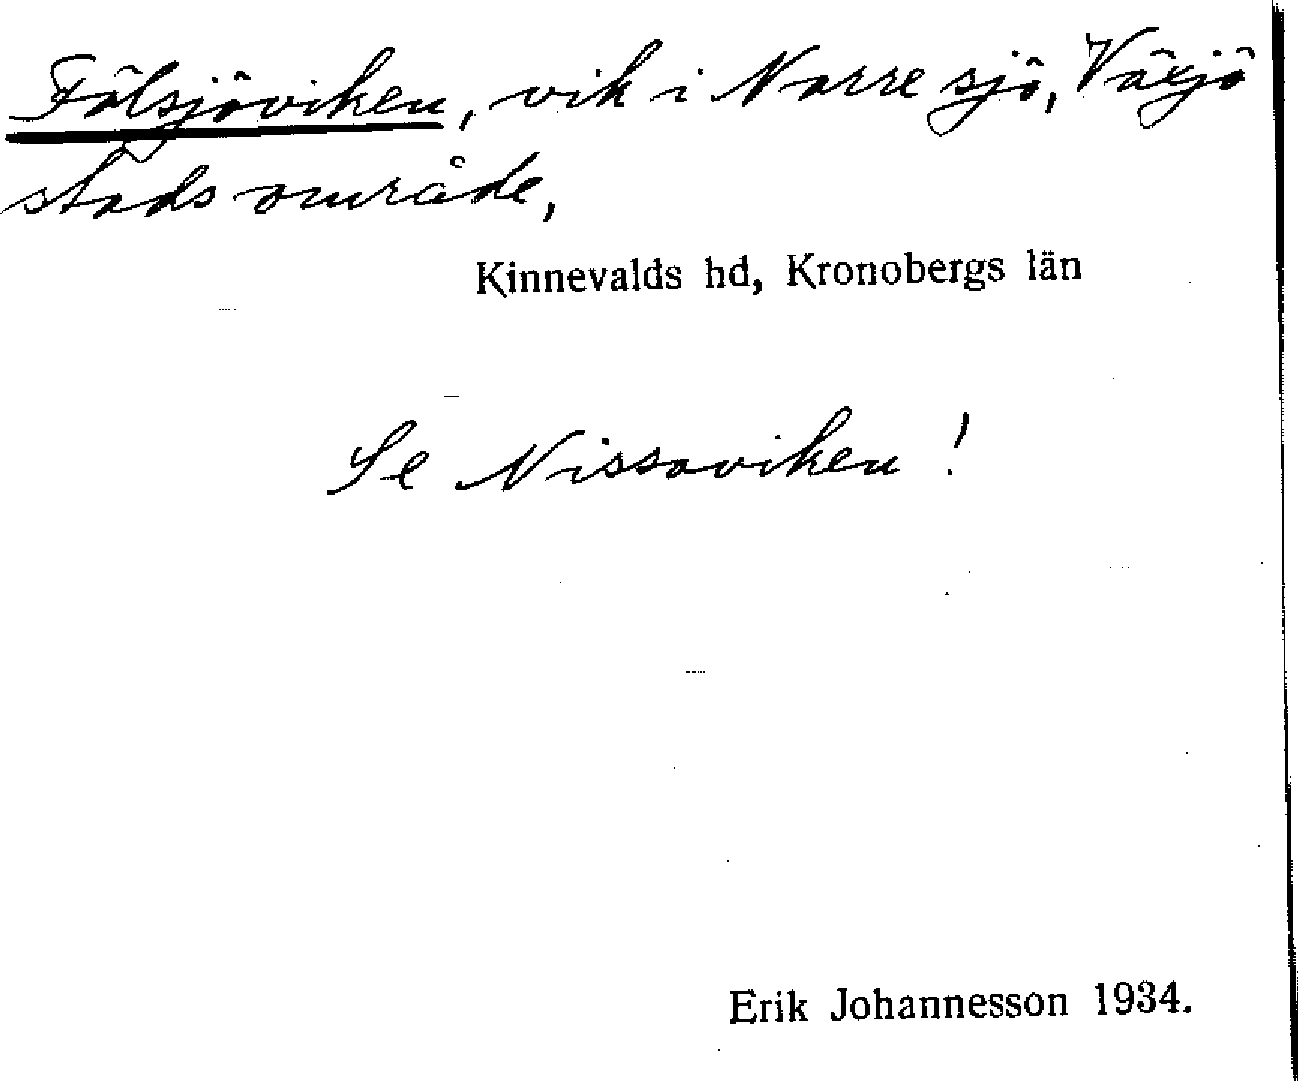 Fölsjöviken, vik i Norre sjö, Växjö
stads område,
Kinnevalds hd, Kronobergs län
Se Nissaviken!
Erik Johannesson 1934.